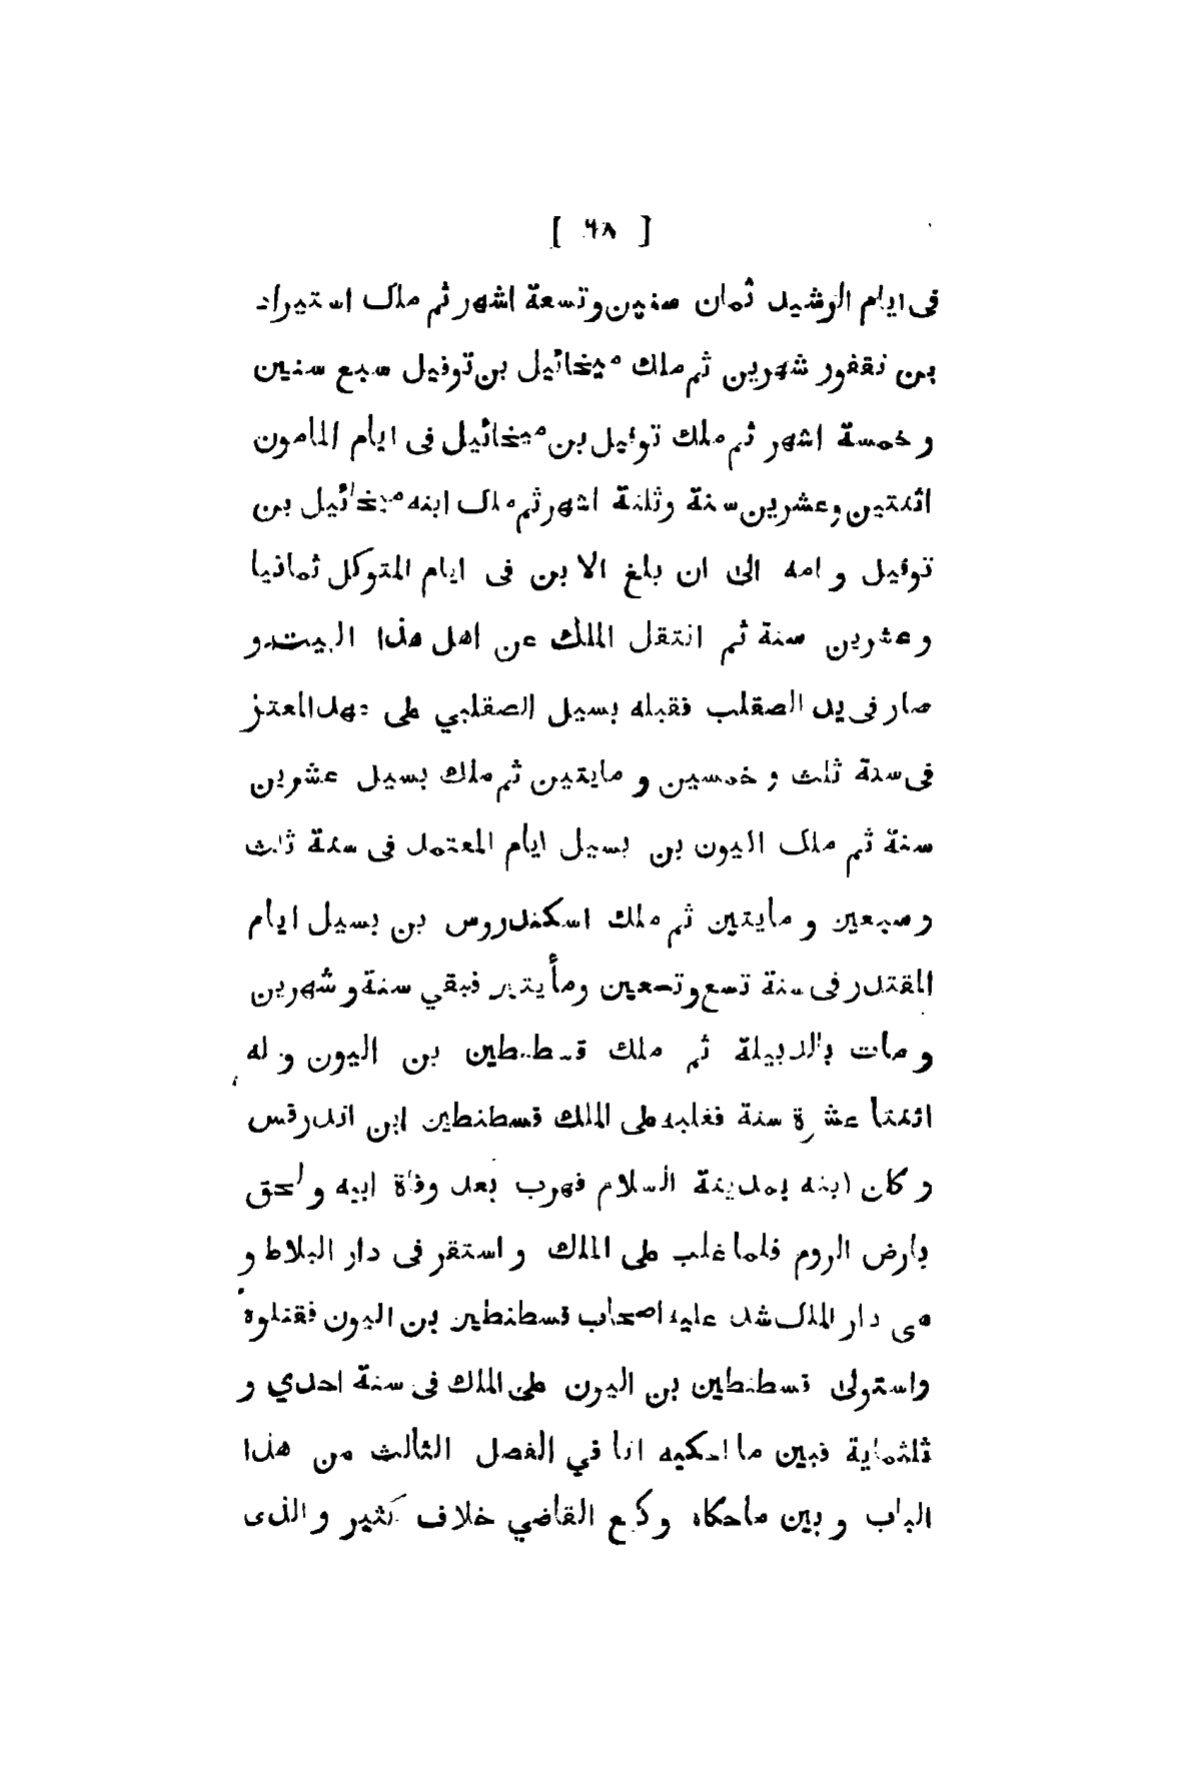 [ ٦٨ ]
فى ايام الرشيد ثمان سنين وتسعة اشهر ثم ملك استيراد
بن نقفور شهرين ثم ملك ميخائيل بن توفيل سبع سنين
و خمسة اشهر ثم ملك توفيل بن ميخائيل فى ايام المامون
اثنتين وعشرين سنة وثلثة اشهر ثم ملك ابنه ميخائيل بن
توفيل و امه الى ان بلغ الابن فى ايام المتوكل ثمانيا
وعشرين سنة ثم انتقل الملك عن اهل هذا البيت و
صار فى يد الصقلب فقبله بسيل الصقلبي على عهد المعتز
فى سنة ثلث و خمسين و مايتين ثم ملك بسيل عشرين
سنة ثم ملك اليون بن بسيل ايام المعتمد فى سنة ثلث
وسبعين و مايتين ثم ملك اسكندروس بن بسيل ايام
المقتدر فى سنة تسع وتسعين ومأيتين فبقي سنة و شهرين
و مات بالدبيلة ثم ملك قسطنطين بن اليون و له
اثنتا عشرة سنة فغلبه على الملك قسطنطين ابن اندرقس
و كان ابنه بمدينة السلام فهرب بعد وفاة ابيه و لحق
بارض الروم فلما غلب على الملك و استقر فى دار البلاط و
هى دار الملك شد عليه اصحاب قسطنطين بن اليون فقتلوه
واستولى قسطنطين بن اليون على الملك فى سنة احدي و
ثلثماية فبين ما احكيه انا في الفصل الثالث من هذا
الباب و بين ماحكاه وكيع القاضي خلاف كثير و الذى